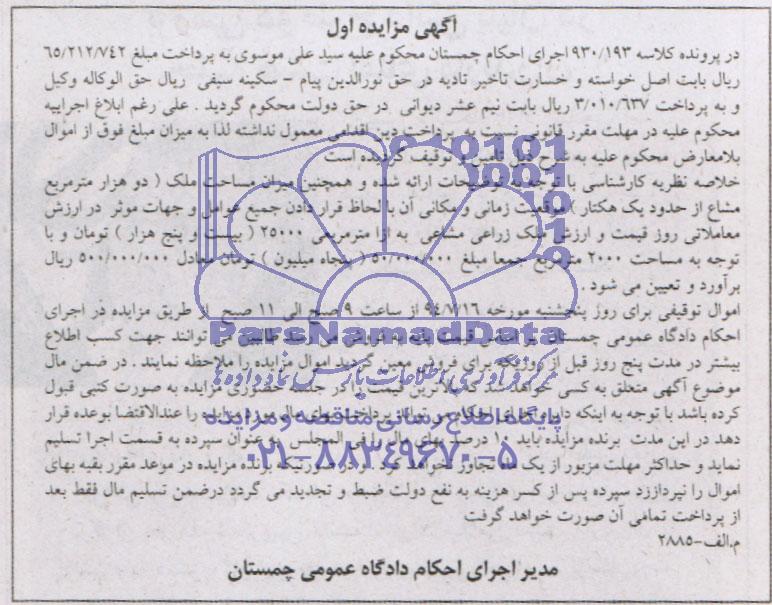 آگهی مزایده اول
در پرونده کلاسه ۹۳۰/۱۹۳ اجرای احکام چمستان محکوم علیه سید علی موسوی به پرداخت مبلغ ۶۵/۲۱۲/۷۴۲
ریال بابت اصل خواسته و خسارت تاخیر تادیه در حق نورالدین پیام – سکینه سیفی ریال حق الوکاله وکیل
و به پرداخت ۳/۰۱۰/۶۳۷ ریال بابت نیم عشر دیوانی در حق دولت محکوم گردید . علی رغم ابلاغ اجراییه
محکوم علیه در مهلت مقرر قانونی نسبت به پرداخت دین اقدامی معمول نداشته لذا به میزان مبلغ فوق از اموال
بلامعارض محکوم علیه به شرح ذیل تامین و توقیف گردیده است
خلاصه نظریه کارشناسی با توجه به توضیحات ارائه شده و همچنین میزان مساحت ملک ( دو هزار مترمربع
مشاع از حدود یک هکتار ) موقعیت زمانی و مکانی آن با لحاظ قرار دادن جمیع عوامل و جهات موثر در ارزش
معاملاتی روز قیمت و ارزش ملک زراعی مشاعی به ازا مترمربعی ۲۵۰۰۰ ( بیست و پنج هزار ) تومان و با
توجه به مساحت ۲۰۰۰ مترمربع جمعا مبلغ ۵۰/۰۰۰/۰۰۰ ( پنجاه میلیون ) تومان معادل ۵۰۰/۰۰۰/۰۰۰ ریال
برآورد و تعیین می شود .
اموال توقیفی برای روز پنجشنبه مورخه ۹۴/۷/۱۶ از ساعت ۹ صبح الی ۱۱ صبح از طریق مزایده در اجرای
احکام دادگاه عمومی چمستان بر اساس قیمت پایه به فروش می رسد طالبین می توانند جهت کسب اطلاع
بیشتر در مدت پنج روز قبل از روزیکه برای فروش معین گردید اموال مزایده را ملاحظه نمایند . در ضمن مال
موضوع آگهی متعلق به کسی خواهد شد که بالاترین قیمت را در جلسه حضوری مزایده به صورت کتبی قبول
کرده باشد با توجه به اینکه دایره اجرای احکام می تواند پرداخت بهای مال مورد مزایده را عندالاقتضا بوعده قرار
دهد در این مدت برنده مزایده باید ۱۰ درصد بهای مال را فی المجلس به عنوان سپرده به قسمت اجرا تسلیم
نماید و حداکثر مهلت مزبور از یک ماه تجاوز نخواهد کرد و در صورتیکه برنده مزایده در موعد مقرر بقیه بهای
اموال را نپردازد سپرده پس از کسر هزینه به نفع دولت ضبط و تجدید می گردد درضمن تسلیم مال فقط بعد
از پرداخت تمامی آن صورت خواهد گرفت
م.الف-۲۸۸۵
مدیر اجرای احکام دادگاه عمومی چمستان
ParsNamadData
مرکز فرآوری اطلاعات پارس نماد داده ها
پایگاه اطلاع رسانی مناقصه و مزایده
۰۲۱-۸۸۳۴۹۶۷۰-۵